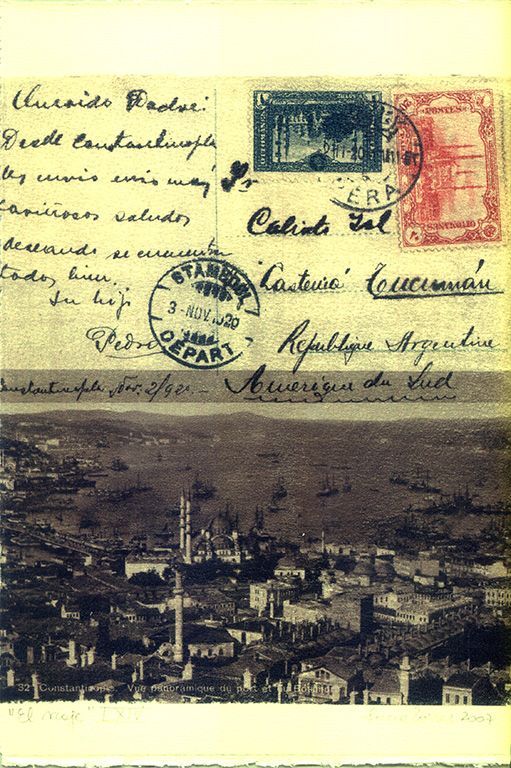 Querido Padre:
Desde Constantinopla
les envio mis mas
cariñosos saludos
deseando se encuentren
todos bien.
Su hijo
Pedro
Constantinopla Nov. 2/920.-
POSTES
OTTOMANES
PERA
Sr
Calixto
Lastenia Tucumán
Republique Argentine
Amerique du Sud
STAMBOUL
3-NOV.1920
DEPART
32 Constantinople. Vue panoramique du port et du Bosphore
"El viaje" 
2007